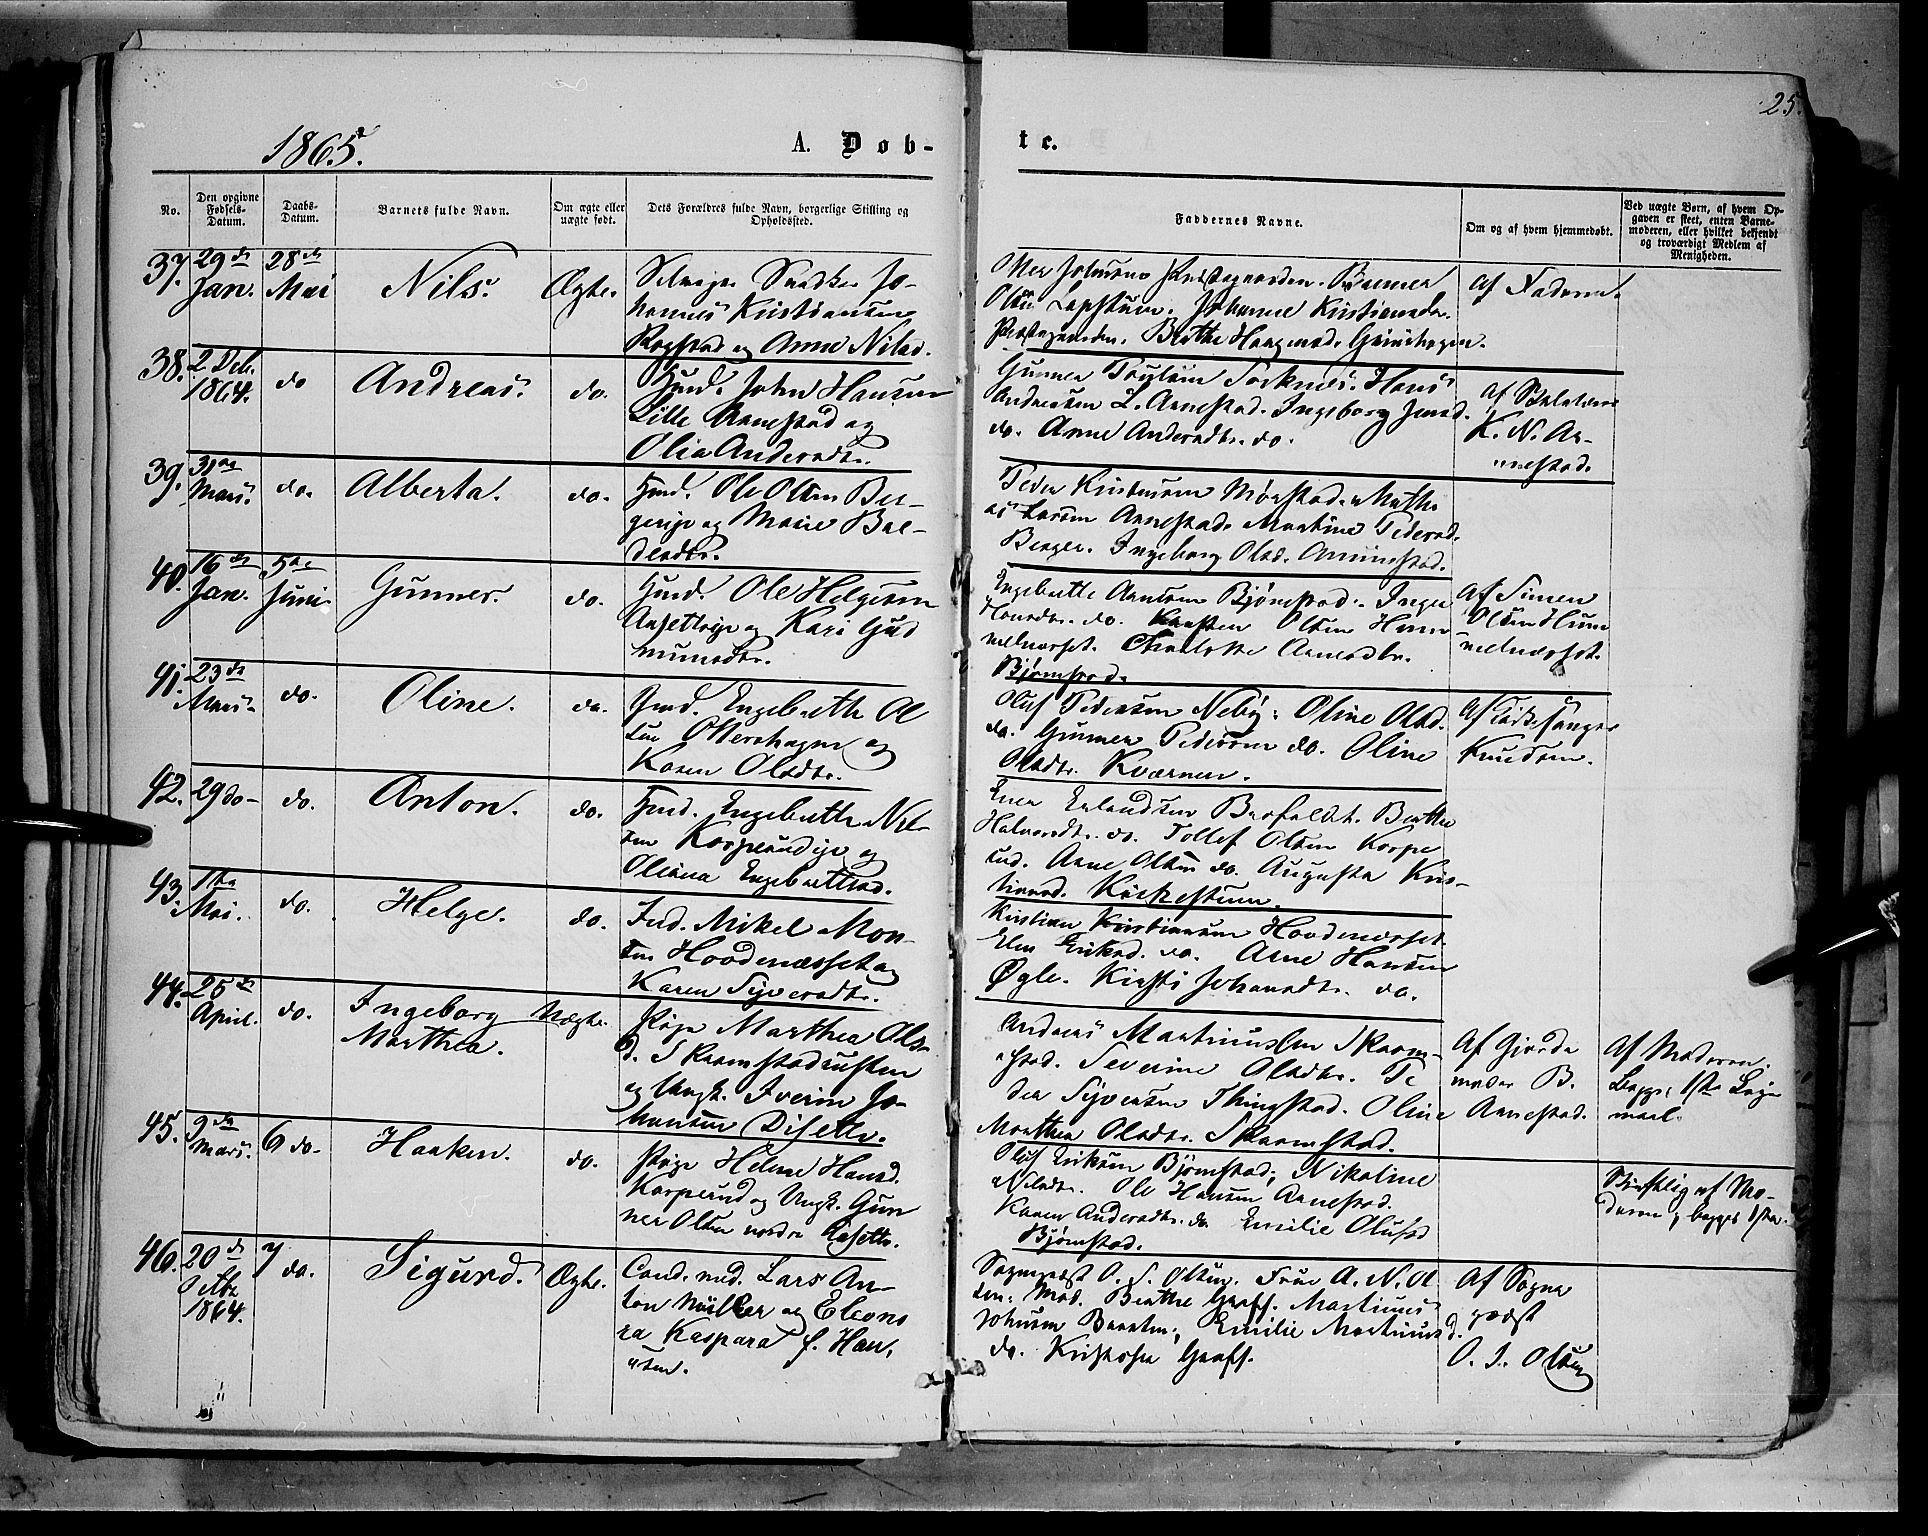 25.
1865.
A. Døb-
te.
No.
Den opgivne Fødsels-Datum.
Daabs-Datum.
Barnets fulde Navn.
Om ægte eller uægte født.
Dets Forældres fulde Navn, borgerlige Stilling og Opholdssted.
Faddernes Navne.
Om og af hvem hjemmedøbt.
Ved uægte Børn, af hvem Opgaven er skeet, enten Barnemoderen, eller hvilket bekjendt og troværdigt Medlem af Menigheden.
37. 29de Jan. 28de Mai Nils. Ægte.
Snedker Jo-
hannes Kristiansen
Rogstad og Anne Nilsd.
Johannes Kristiansdr.
Berthe Haagensd. Grinihagen.
Af Faderen.
38. 2 Deb. 1864. do Andreas. do.
Husd. John Hansen
Lille Arnestad og
Olia Andersdtr.
Gunner Poulsen Sorknes. Hans
Andersen L. Arnestad. Ingeborg Jensd.
do. Anne Andersdtr. do.
Af
K. N. Ar-
nestad.
39. 31te Mars. do. Alberta. do.
Husd. Ole Olsen Ber-
gerije og Marie Bal-
dersdtr.
Peder Kristensen Mørstad. Mathi
as Larsen Arnestad. Martine Pedersd.
Berger. Ingeborg Olsd.
40. 16de Jan. 5te Juni Gunner. do.
Husd. Ole Helgesen
og Kari Gud
mundsdtr.
Engebrette Arntsen Bjørnstad. Inger
Hansdtr. do. Karsten Olsen Hum
melnesset. Charlotte Arnesdtr.
Bjørnstad.
Af Simen
Olsen Hum
melnesset.
41. 23de Mars. do. Oline. do.
Husd. Engebrette Ol
sen Ottershagen og
Karen Olsdtr.
Oluf Pedersen Neby. Oline Olsd.
do. Gunner Pedersen do. Oline
Olsdtr. Kværnen.
Af Kirkesanger
Knudsen.
42. 29 do- do. Anton. do.
Husd. Engebrette Nil-
sen Korperudeje og
Oliana Engebrettsd.
Erlandsen Berthe
Halvorsdtr. do. Tollef Olsen Korpe
rud. Arne Olsen do. Augusta Kris-
tiansd. Kirkestuen.
43. 1ste Mai. do. Helge. do.
Ind. Mikel Mon-
sen Hoodenæsset og
Karen Syversdtr.
Kristian Kristiansen Hoodenæsset
Elen Eriksd. do. Arne Hansen
Øgle. Kirsti Johansdtr. do.
44. 25de April. do. Ingeborg
Marthea. Uægte.
Pige Marthea Ols-
d. Skramstadeusten
og Ungk. Iverin Jo-
hansen Disetli.
Andreas Martinussen Skram-
stad. Severine Olsdtr. Pe
der Syversen Thingstad. Oline
Marthea Olsdtr. Skramstad.
Af Gjorde
moder B.
Arnestad.
Af Moderen.
Begges 1ste Leje-
maal.
45. 9de Mars. 6 do. Haaken. do.
Pige Helene Hansd.
Korperud og Ungk. Gun
ner Olsen nordre
Oluf Eriksen Bjørnstad; Nikoline
Nilsdtr. Ole Hansen Arnestad.
Karen Andersdtr. do Emilie Olufsd
Bjørnstad.
Skriftlig af Mo-
deren, begges 1ste.
46. 20de Octbr 1864. 7 do. Sigurd. Ægte.
Cand. med. Lars An-
ton Müller og Eleono
ra Kaspara f. Han-
sten.
Sogneprest O. S. Olsen. Frue A. N. Ol
sen. Mad. Berthe Graff. Martinus
Johnsen Emilie Martinusd.
do. Kristofer Graff.
Af Sogne
prest
O. S. Olsen